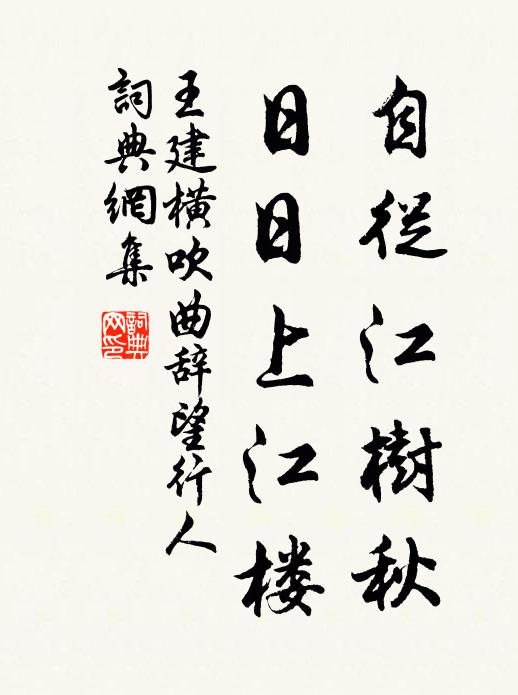 自從江樹秋
日日上江楼
王建橫吹曲辞望行人
詞典網集
詞典网印